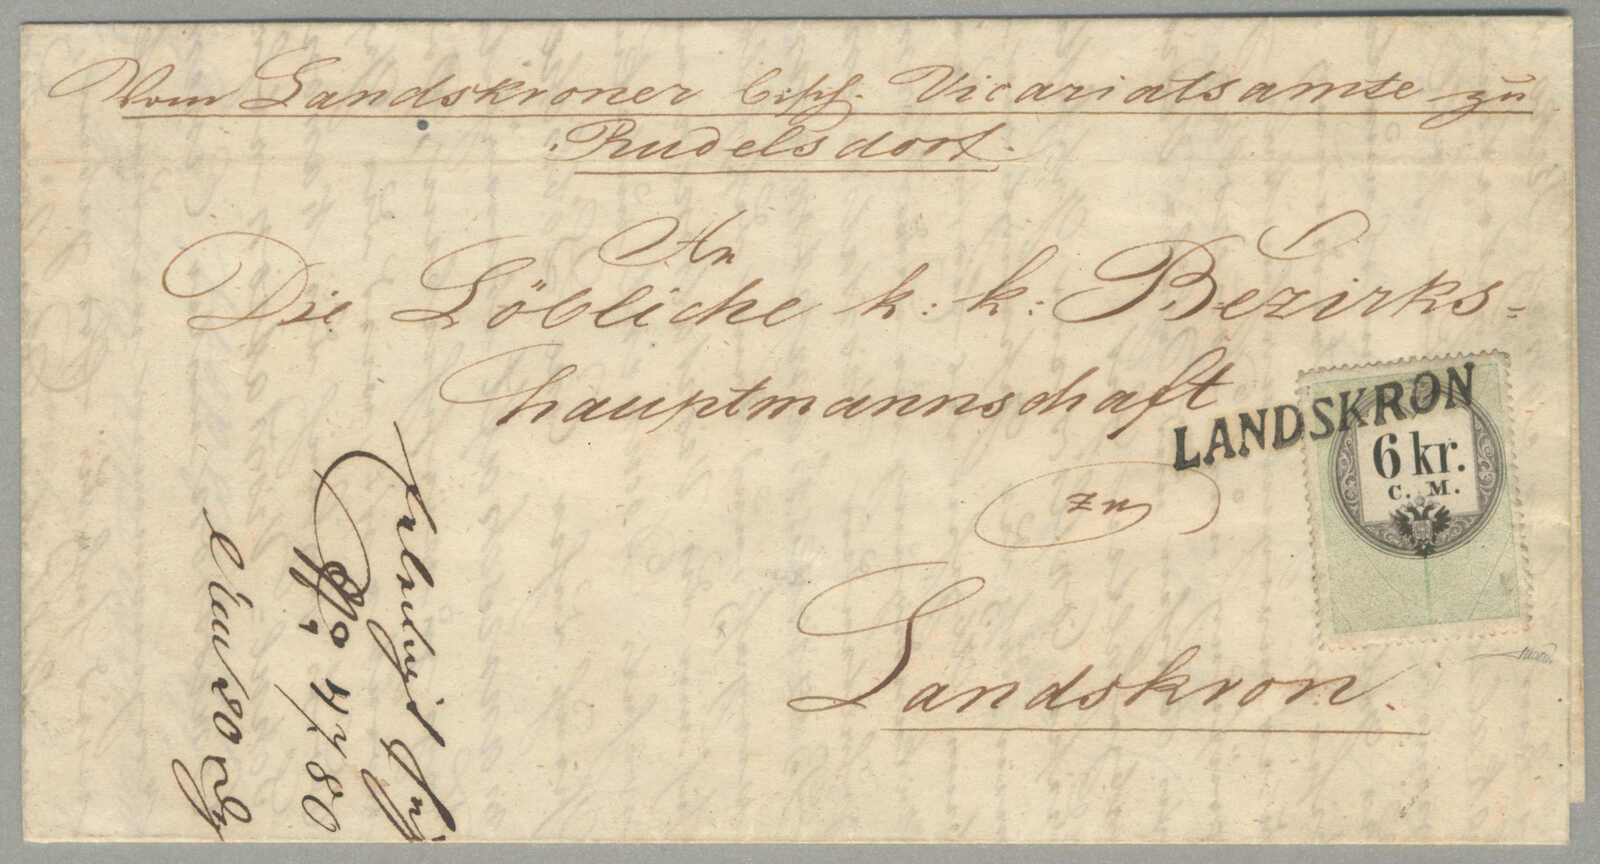 Vom Landskroner bisch. Vicariatsamte zu
Rudelsdorf.
An
Die Löbliche k: k: Bezirks=
hauptmannschaft
zu
Landskron.
LANDSKRON
6 kr.
C. M.